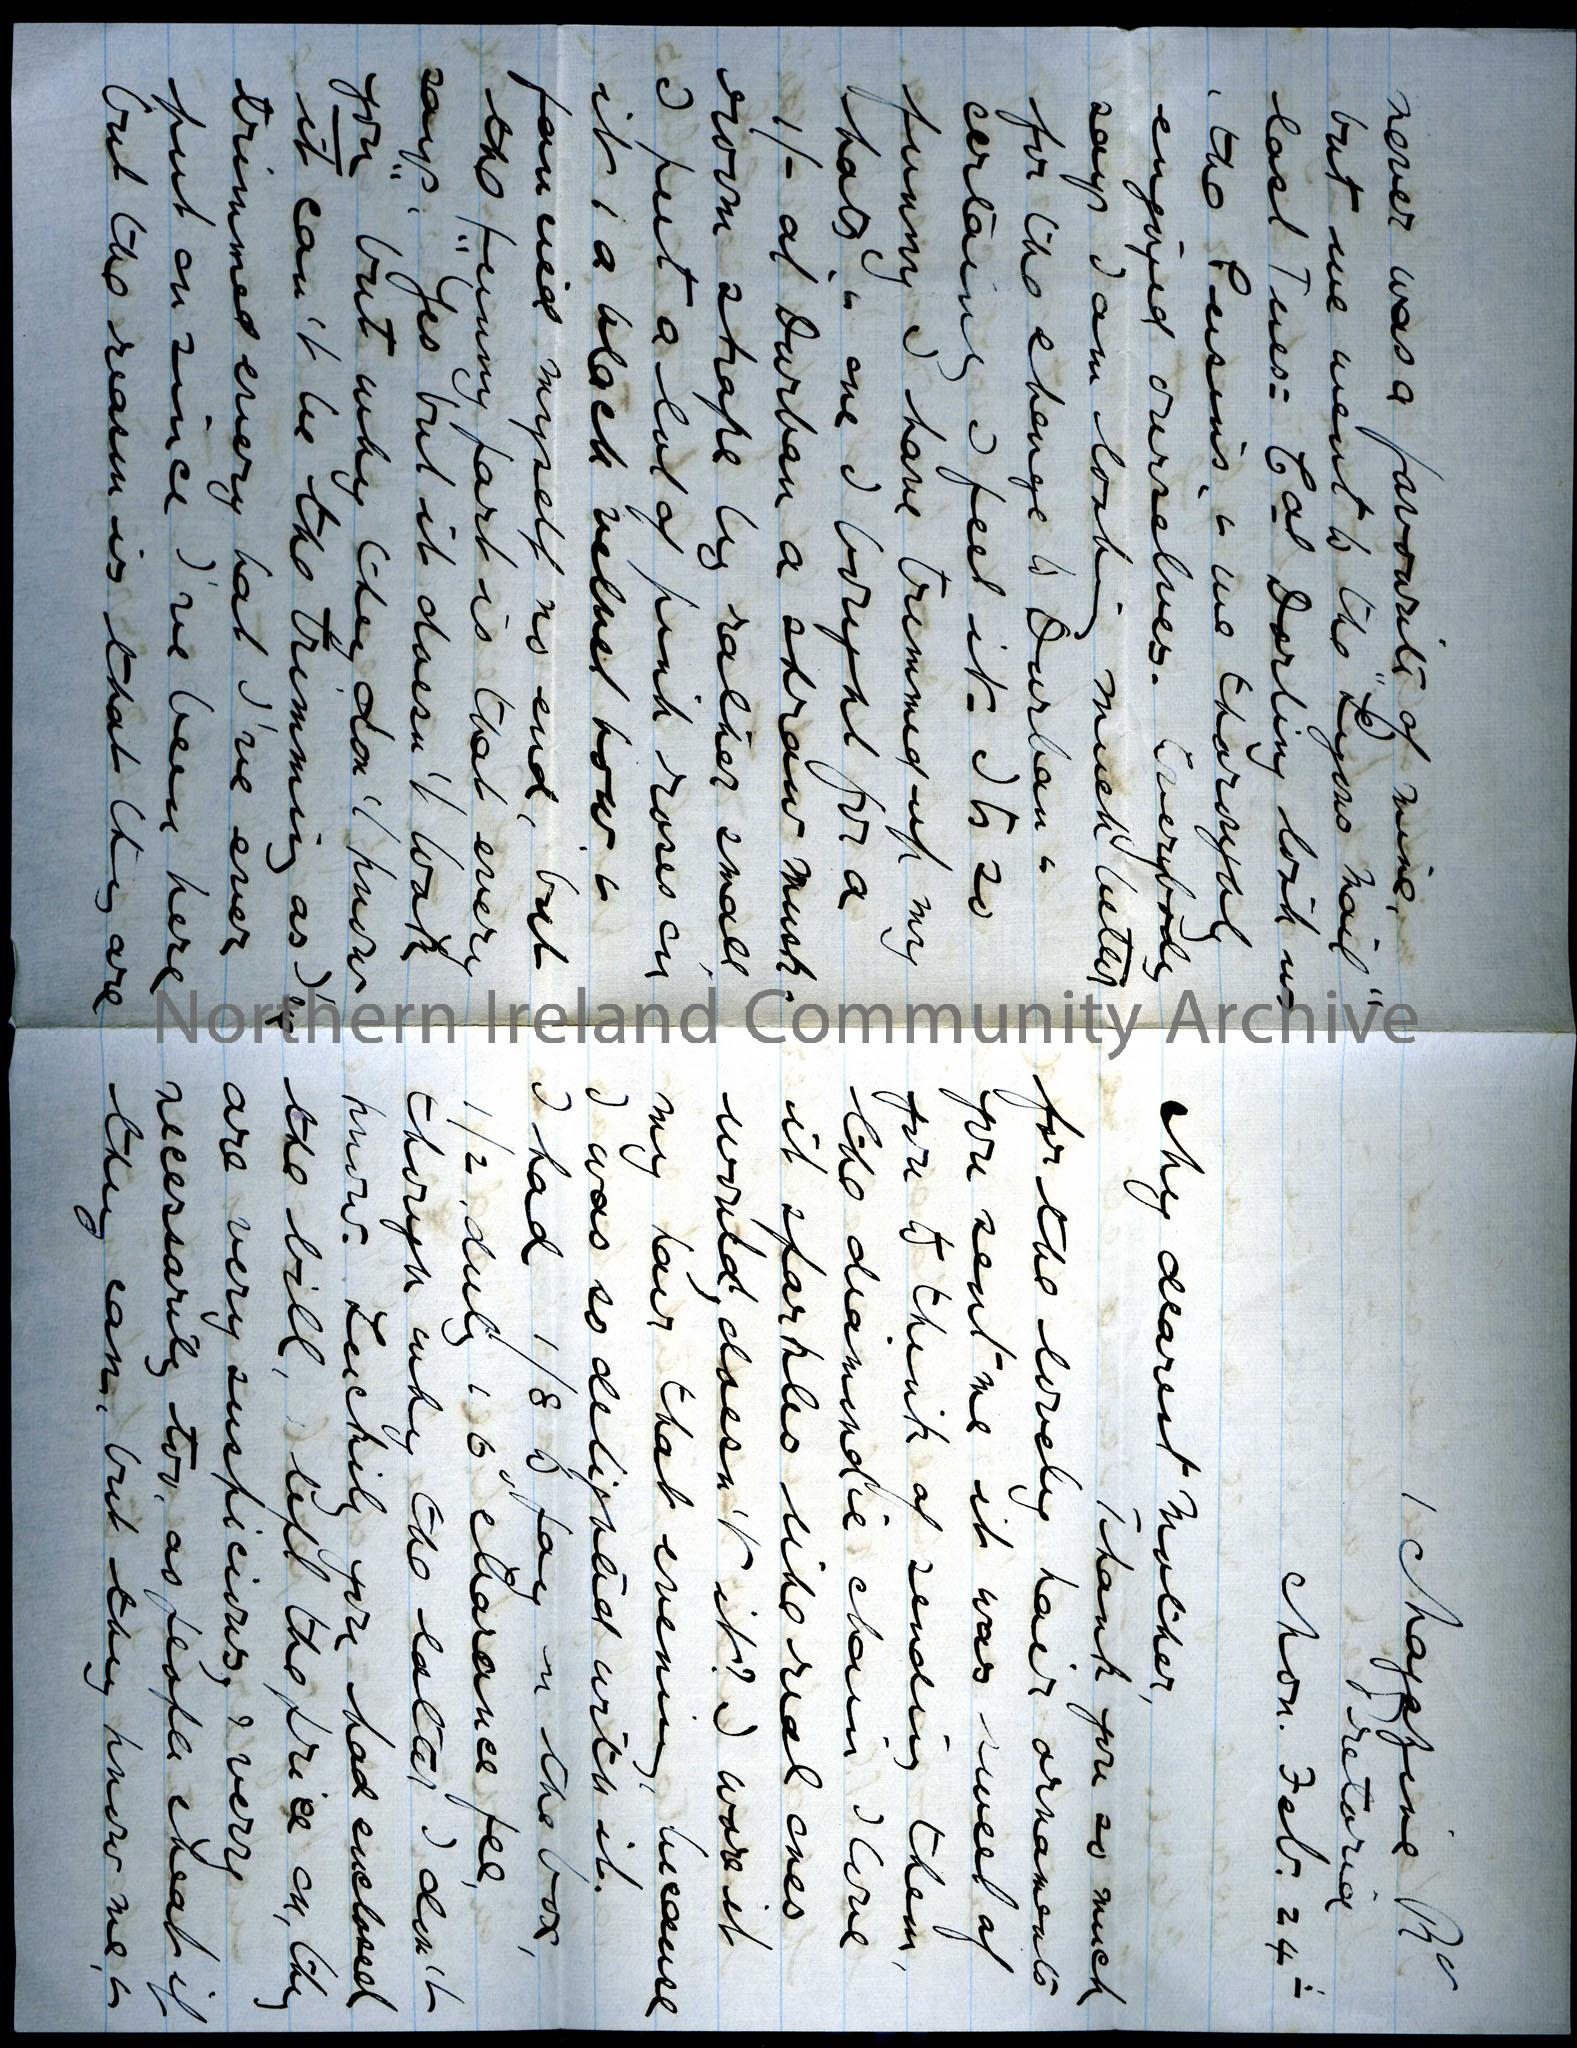 1 Magazine Rd
Pretoria
Mon. Feb. 24th
My dearest Mother,
Thank you so much
for the lovely hair ornaments
you sent me it was sweet of
you to think of sending them,
the diamindie chain I love
it sparkles like real ones
would, doesn't it? I wore it
my hair that evening, because
I was so delighted with it.
I had 1/8 to pay on the box,
1/2, duty, & 6d clearance fee,
though why the latter I don't
know. Luckily you had enclosed
the bill, & left the price on, they
are very suspicious, & very
necessarily too, as people cheat if
they can, but they know me, &
never was a favourite of mine,
but we went to the "Lyons Mail"
last Tues: Col Dorling took us
, the Pensins, & we thoroughly
enjoyed ourselves. Everybody
says I am looking much better
for the change to Durban &
certainly I feel it. It is so
funny I have trimmed up my
hats, & one I bought for a
1/- at Durban a straw mush-
room shape by rather small,
I put a lot of pink roses on
it, a black velvet bow, &
fancied myself no end, but
the funny part is that every
says, "Yes but it doesn't look
you" but why they don't know
it can't be the trimming as I've
trimmed every hat I've ever
put on since I've been here
but the reason is that they are
Northern Ireland Community Archive